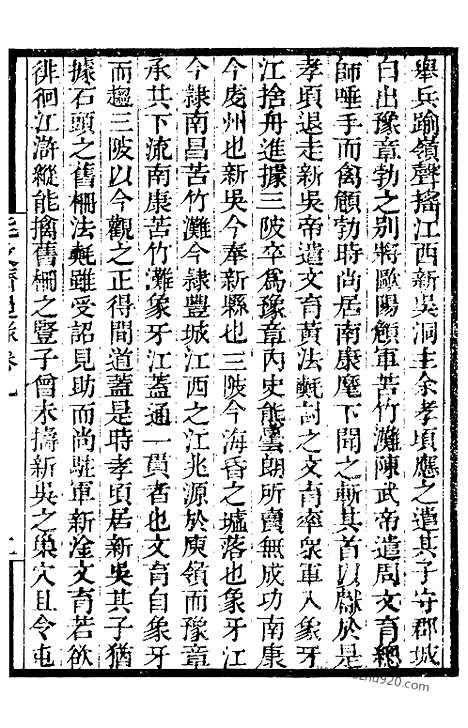 舉兵踰嶺聲搖江西新吳洞主余孝頃應之遣其子守郡城
自出豫章勃之別將歐陽頠軍苦竹灘陳武帝遣周文育總
師唾手而禽頠勃時尚居南康麾下聞之斬其首以獻於是
孝頃退走新吳帝遣文育黃法𣰰討之文育率眾軍入象牙
江捨舟進據三陂卒為豫章內史熊曇朗所賣無成功南康
今虔州也新吳今奉新縣也三陂今海昏之墟落也象牙江
今隸南昌苦竹灘今隸豐城江西之江兆源於庾嶺而豫章
承其下流南康苦竹灘象牙江蓋通一貫者也文育自象牙
而趨三陂以今觀之正得間道蓋是時孝頃居新吳其子猶
據石頭之舊柵法𣰰雖受詔見助而尚駐軍新淦文育若欲
徘徊江滸縱能擒舊柵之豎子曾未擣新吳之巢穴且令屯